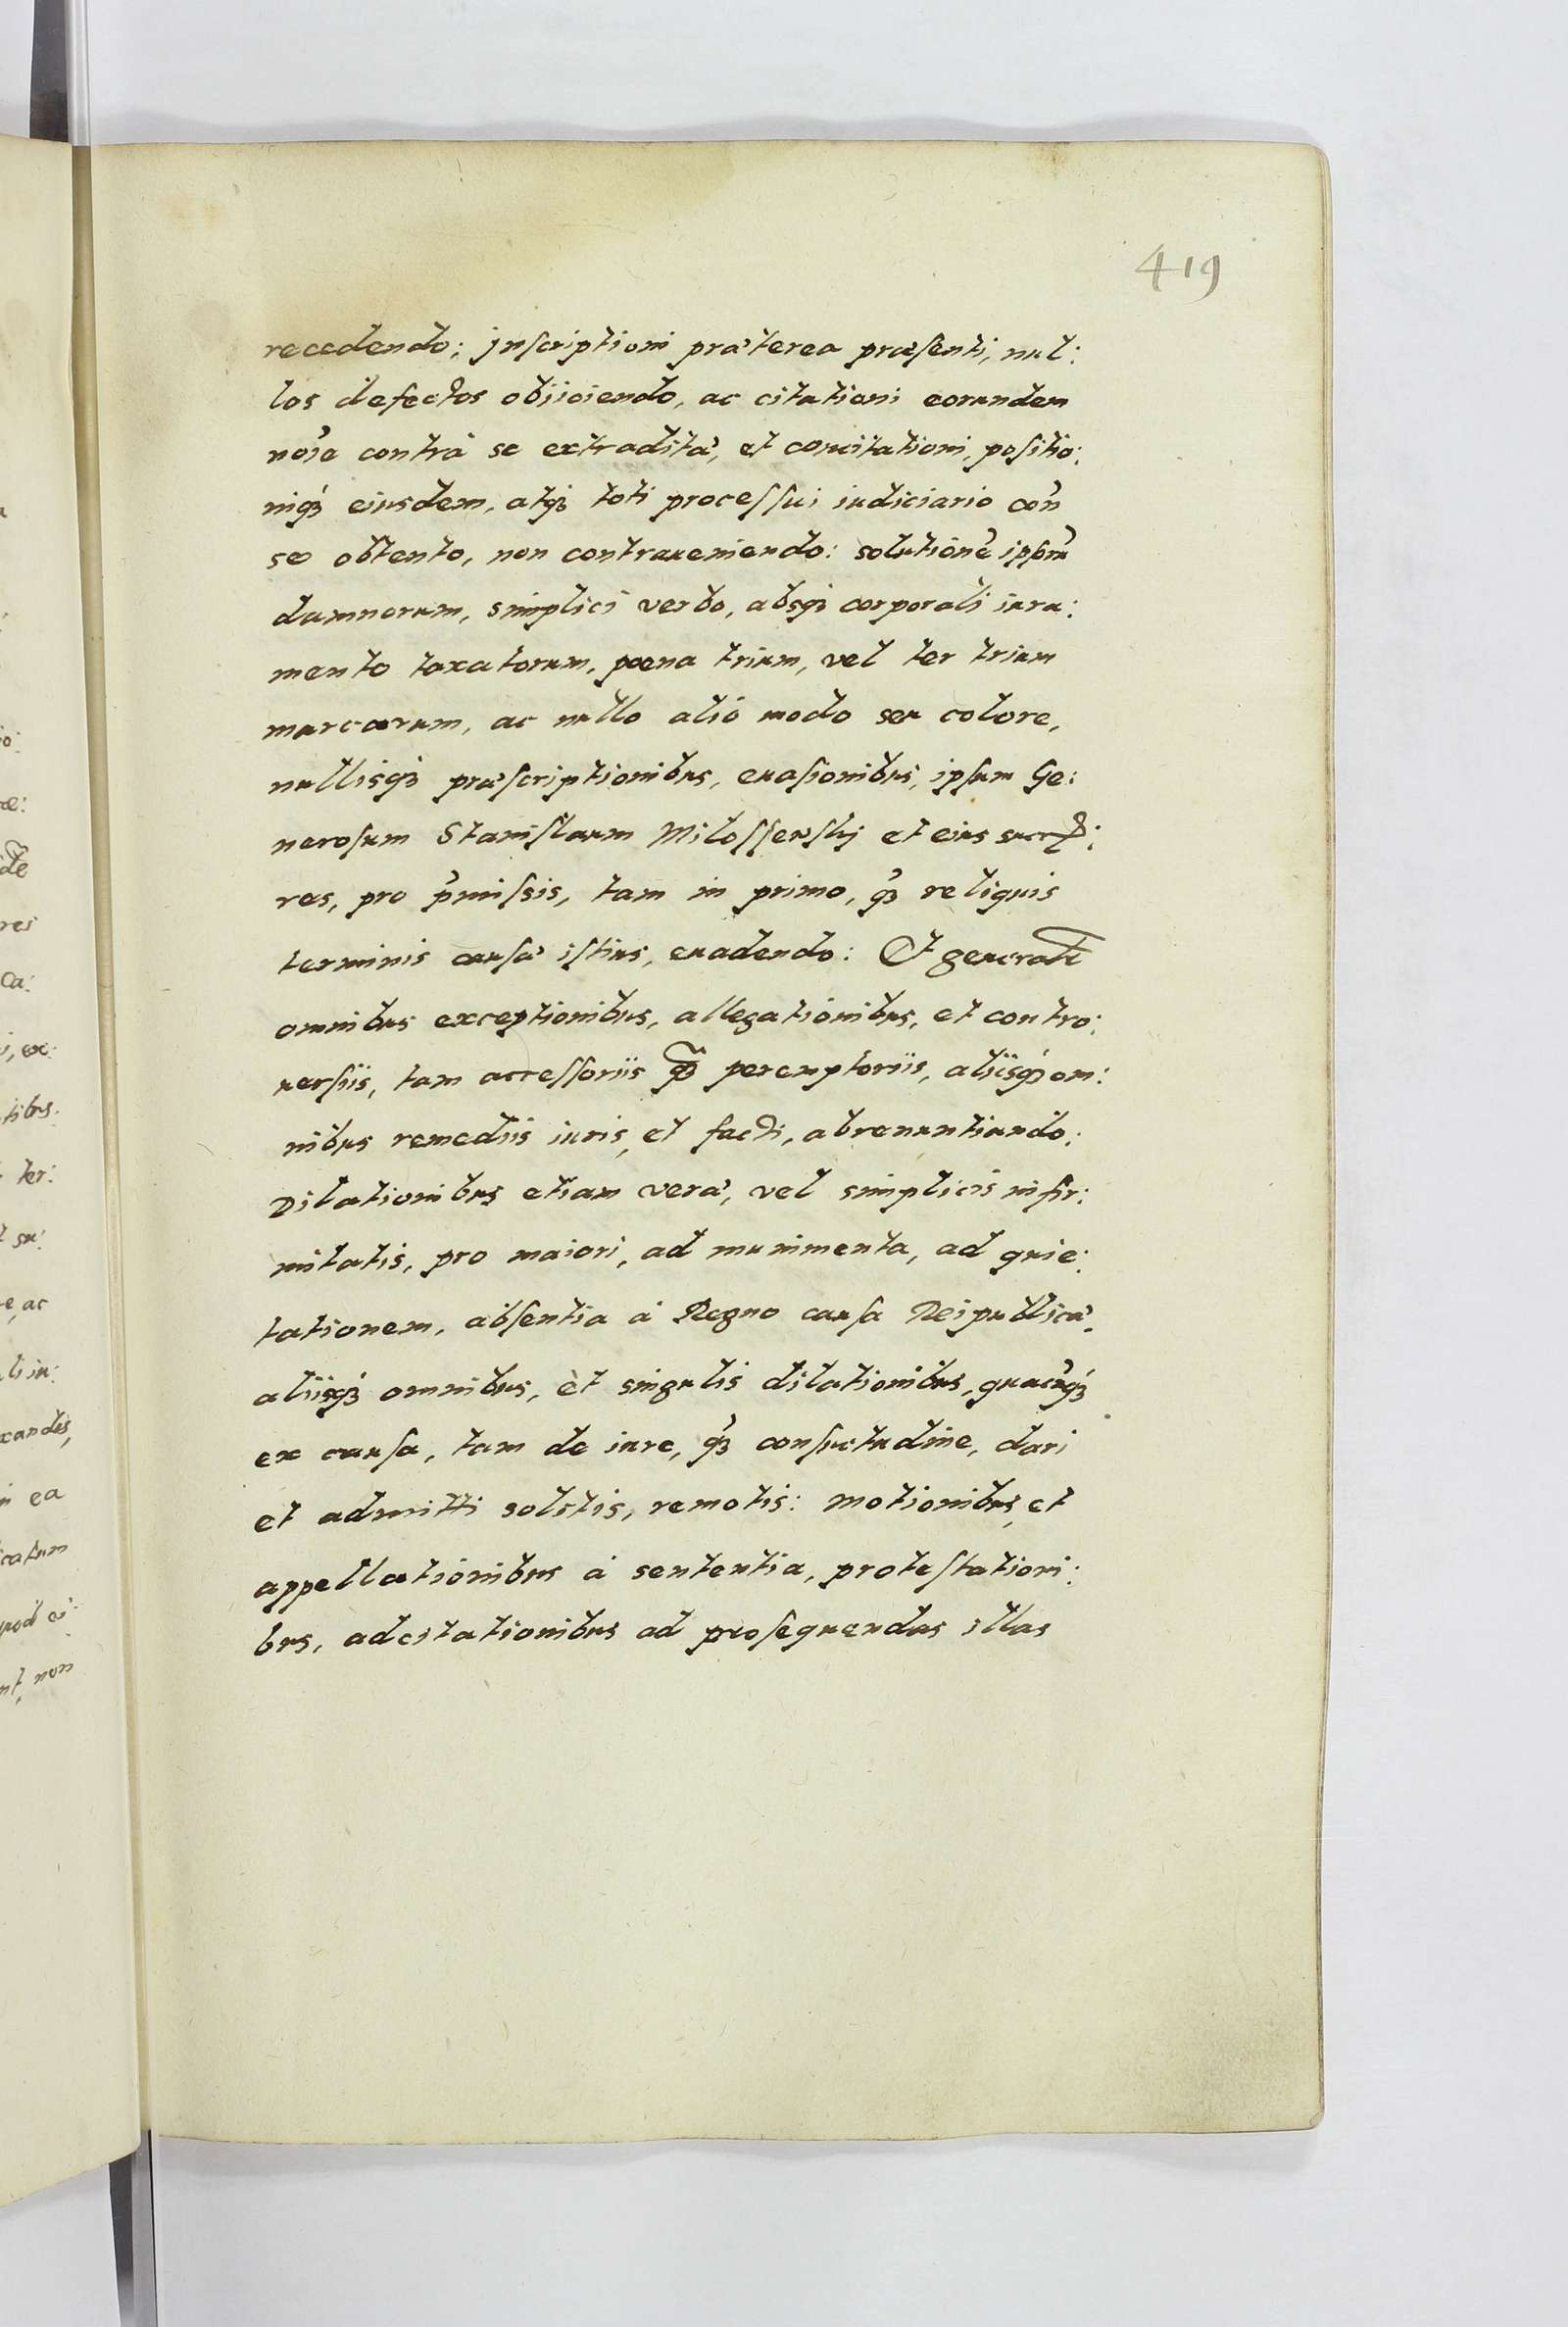 419
recedendo; jnscriptioni præterea præsenti, nul:
los defectos obijciendo, ac citationi eorundem
no͂ie contrà se extraditæ, et concitationi, positio:
niq́ꝫ eiusdem, atq́ꝫ toti processui iudiciario con͂
se obtento, non contraueniendo: solutione͂ ipsoru͂
damnorum, simplici verbo, absq́ꝫ corporali iura:
mento taxatorum, poena trium, vel ter trium
marcarum, ac nullo alio modo seu colore,
nullisq́ꝫ præscriptionibus, euasionibus, ipsum Ge:
nerosum Stanislaum Milosseẃskij et eius
res, pro p͂missis, tam in primo, q͂ꝫ reliquis
terminis causæ istius, euadendo: Et generalr̃
omnibus exceptionibus, allegationibus, et contro:
uersiis, tam accessoriis q̃ꝫ peremptoriis, aliisq́ꝫ om:
nibus remediis iuris, et facti, abrenuntiando:
Dilationibus etiam veræ, vel simplicis infir:
mitatis, pro maiori, ad munimenta, ad quie:
tationem, absentia á Regno causa Reipublicæ,
aliisq́ꝫ omnibus, et singulis dilationibus, quacu͂q́ꝫ
ex causa, tam de iure, q͂ꝫ consuetudine, dari
et admitti solitis, remotis: motionibus, et
appellationibus á sententia, protestationi:
bus, adcitationibus ad prosequendas illas